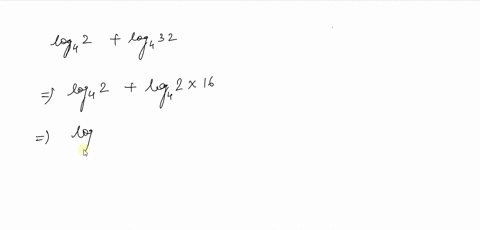 log₄2 + log₄32
⇒ log₄2 + log₄2×16
⇒ log